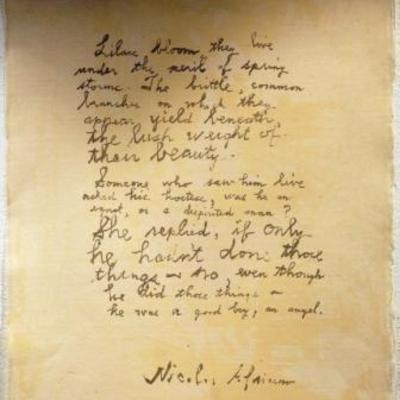 Lilac bloom, they live
under the peril of spring
storms. The brittle, common
branches on which they
appear yield beneath,
the lush weight of
their beauty.
Someone who saw him live
asked his hostess, was he an
, or a man?
She replied, if only
he hadn't done those
things – no, even though
he did those things –
he was a good boy, an angel.
Nicolas